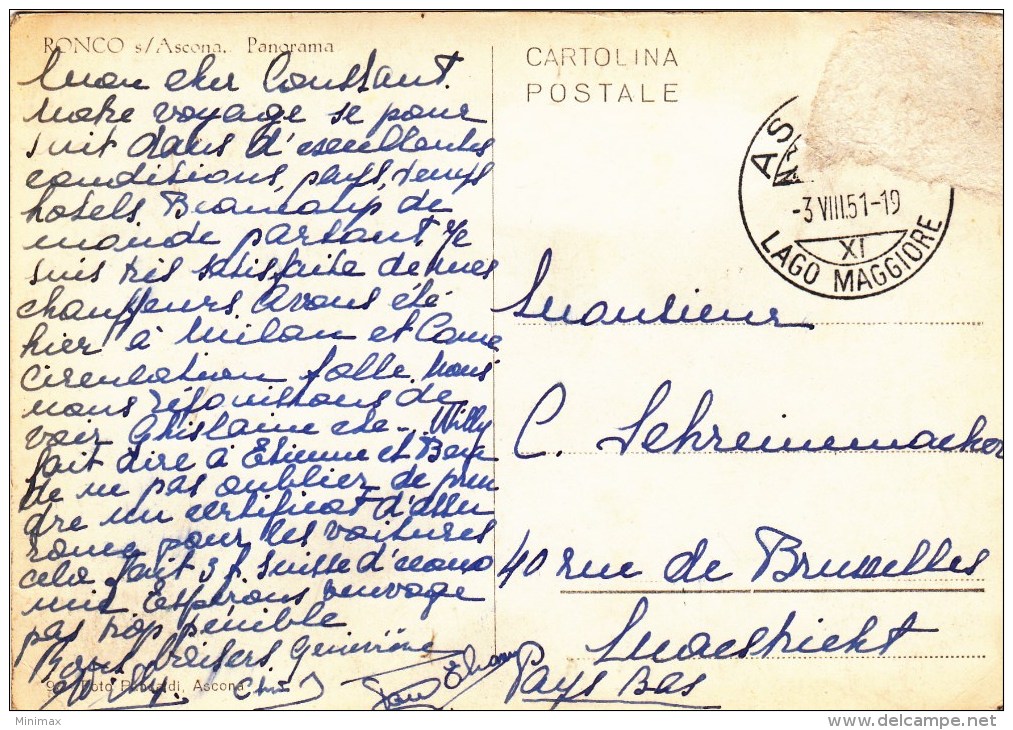 RONCO s/Ascona, Panorama
CARTOLINA
POSTALE
AS
-3 VIII.51-19
XI
LAGO MAGGIORE
Mon cher Constant.
Notre voyage se pour
suit dans d'excellentes
conditions, pays, temps
hotels. Beaucoup de
monde partout. Je
suis très satisfaite de mes
chauffeurs. Avons été
hier à Milan et Come
Circulation folle. Nous
nous réjouissons de
voir Ghislaine etc. Willy
fait dire à Etienne et
de ne pas oublier de pren
dre un certificat d'assu
rance pour les voitures
cela fait 3 f. suisse d'écono
mie Espérons
pas trop pénible
Bons baisers. Geneviève
Willy.
Foto Pancaldi, Ascona
Monsieur
C. Schreinemacher
40 rue de Bruxelles
Maestricht
Pays Bas
Minimax
www.delcampe.net